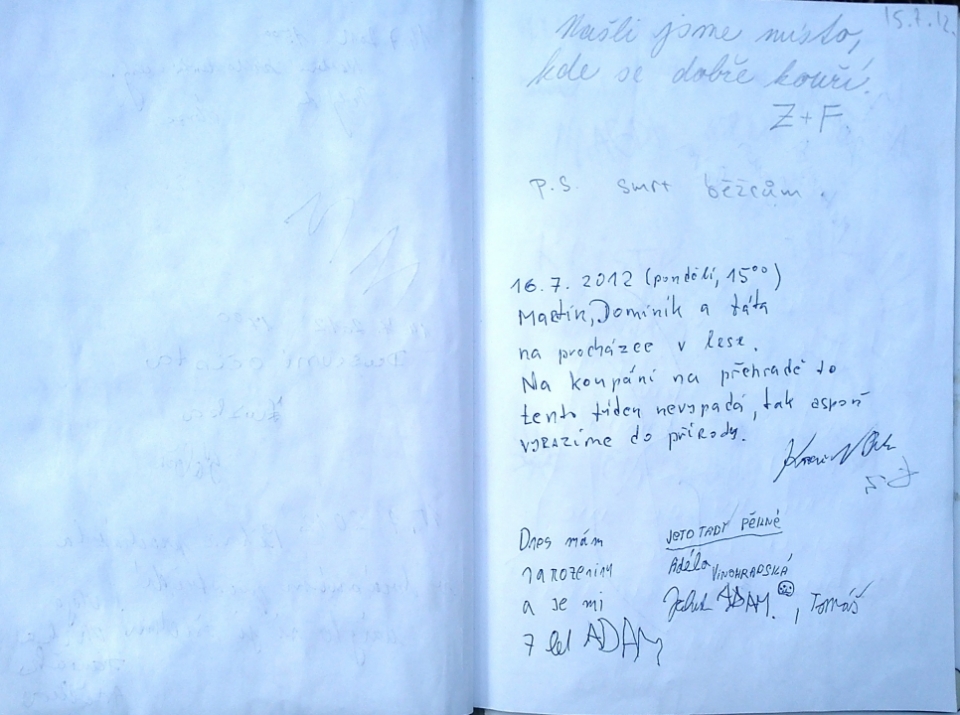 15.7.12.
Našli jsme místo,
kde se dobře kouří.
Z+F
p.s. smrt běžcům.
16.7.2012 (pondělí, 15⁰⁰)
Martin, Dominik a táta
na procházce v lese.
Na koupání na přehradě to
tento týden nevypadá, tak aspoň
vyrazíme do přírody.
Dnes mám
narozeniny
a je mi
7 let ADAM
JETO TADY PĚKNÉ
Adéla VINOHRADSKÁ
ADAM. , Tomáš